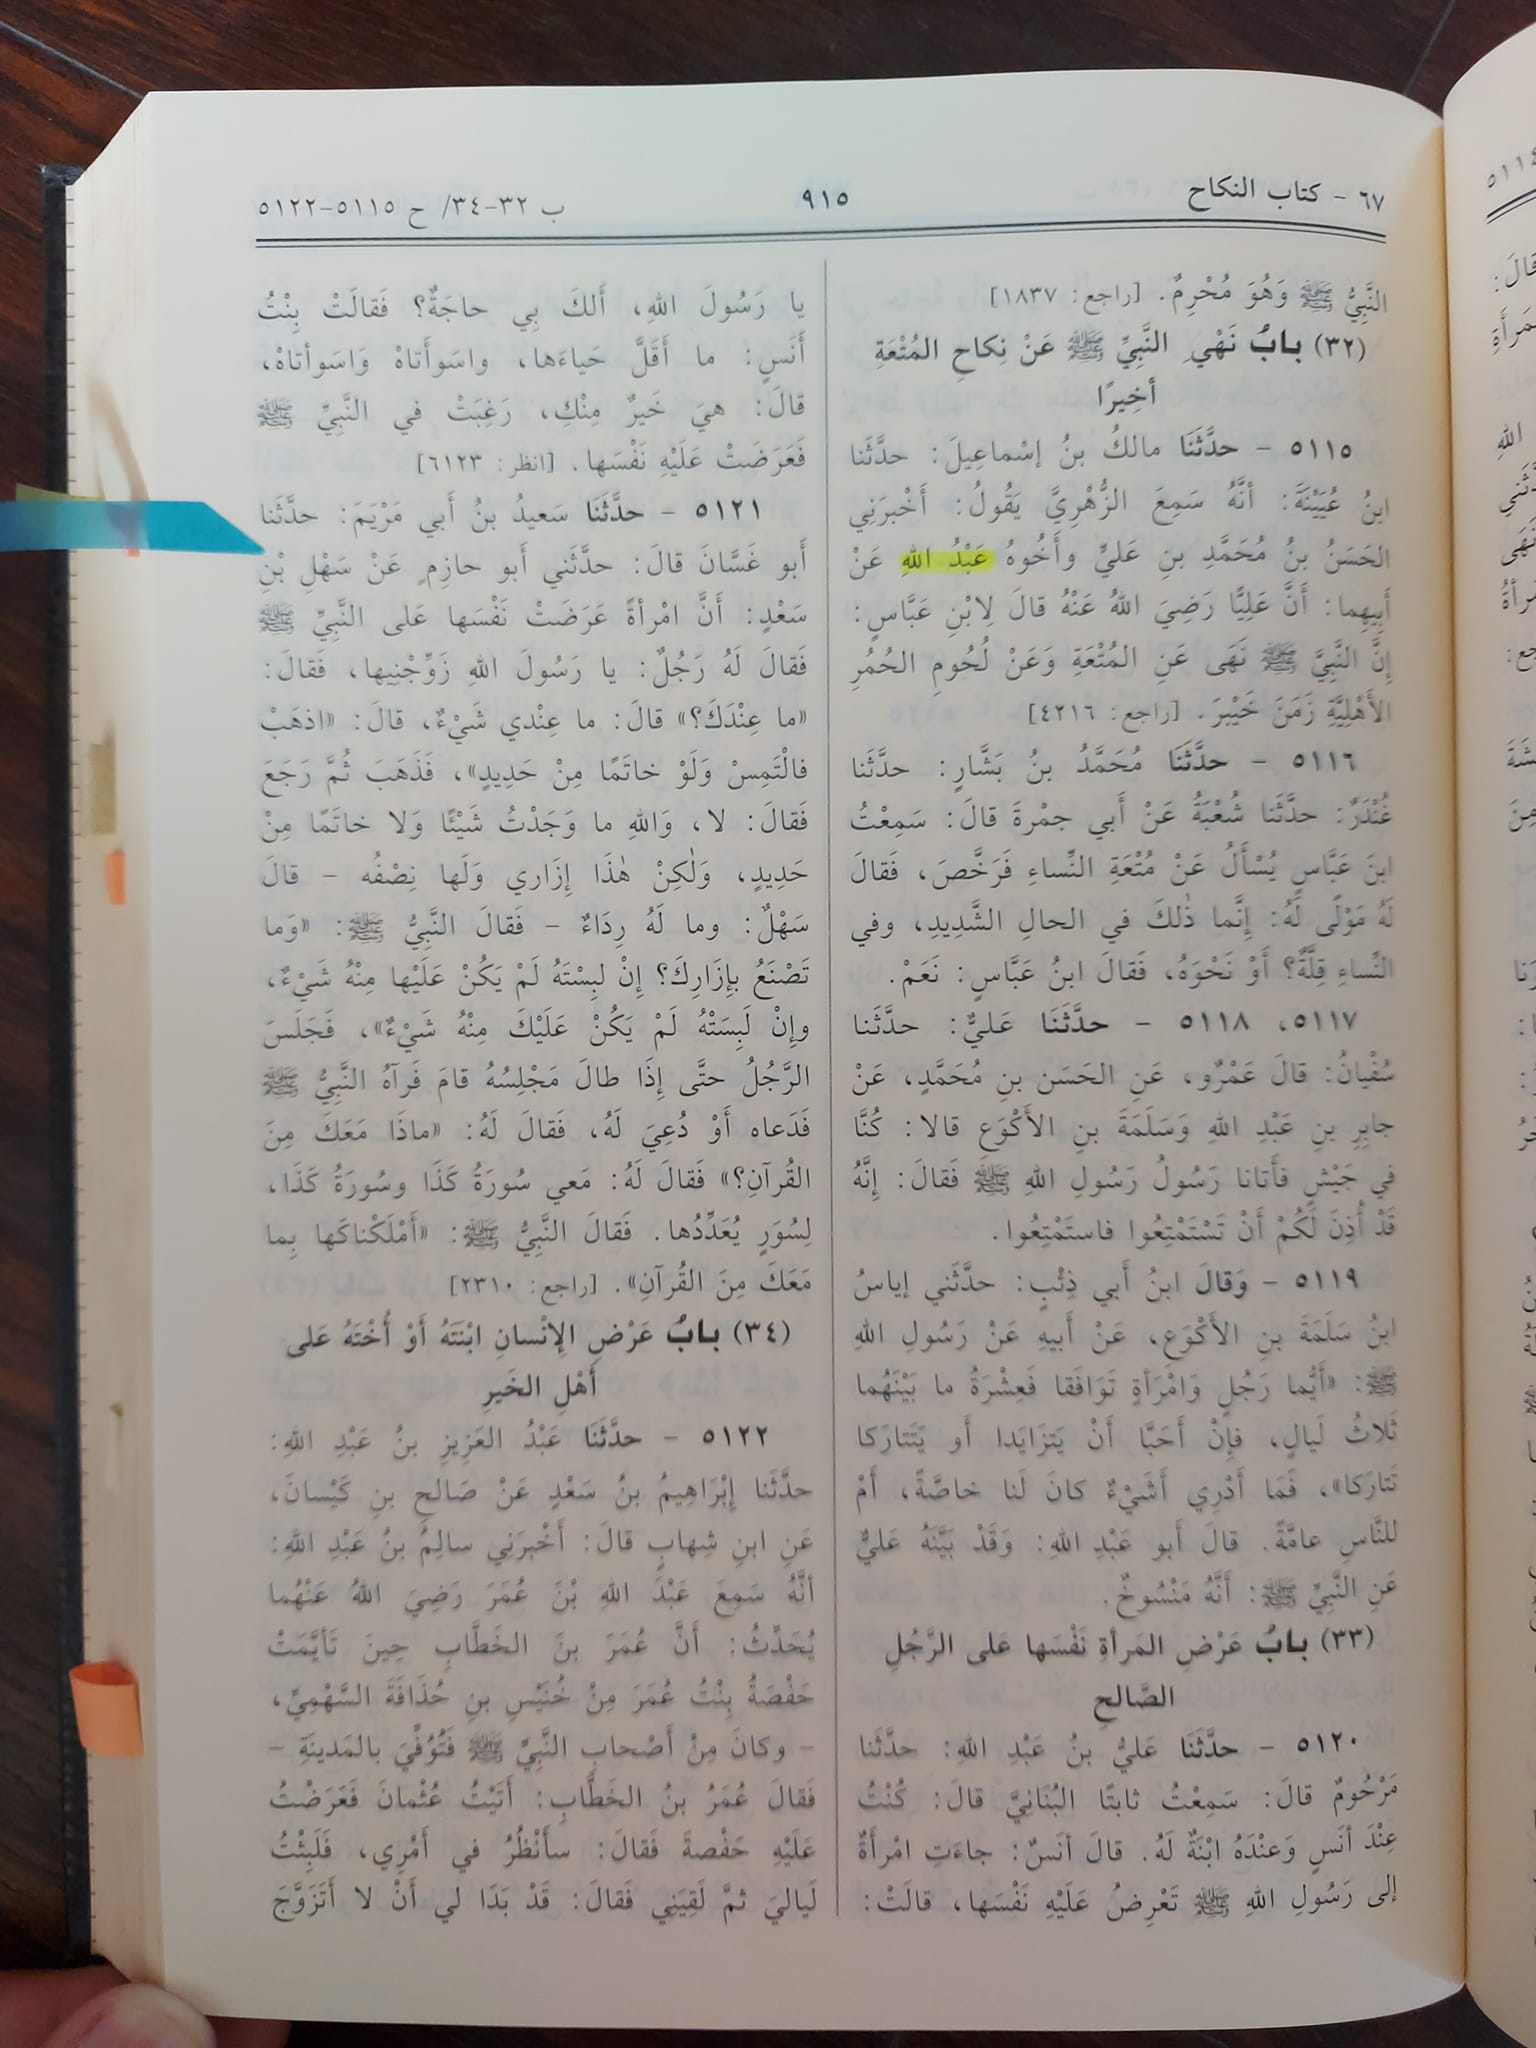 ٦٧ - كتاب النكاح
٩١٥
ب ٣٢-٣٤/ ح ٥١١٥-٥١٢٢
النَّبِيُّ ﷺ وَهُوَ مُحْرِمٌ. [راجع: ١٨٣٧]
(٣٢) بابُ نَهْيِ النَّبِيِّ ﷺ عَنْ نِكاحِ المُتْعَةِ
أخِيرًا
٥١١٥ - حدَّثَنَا مالكُ بنُ إسْماعِيلَ: حدَّثَنا
ابنُ عُيَيْنَةَ: أنَّهُ سَمِعَ الزُّهْرِيَّ يَقُولُ: أَخْبرَنِي
الحَسَنُ بنُ مُحَمَّدِ بنِ عَليٍّ وأَخُوهُ عَبْدُ اللهِ عَنْ
أَبِيهِما: أَنَّ عَلِيًّا رَضِيَ اللهُ عَنْهُ قالَ لِابْنِ عَبَّاسٍ:
إِنَّ النَّبِيَّ ﷺ نَهَى عَنِ المُتْعَةِ وَعَنْ لُحُومِ الحُمُرِ
الأَهْلِيَّةِ زَمَنَ خَيْبرَ. [راجع: ٤٢١٦]
٥١١٦ - حدَّثَنَا مُحَمَّدُ بنُ بَشَّارٍ: حدَّثَنا
غُنْدَرٌ: حدَّثَنا شُعْبَةُ عَنْ أَبي جمْرةَ قالَ: سَمِعْتُ
ابنَ عَبَّاسٍ يُسْأَلُ عَنْ مُتْعَةِ النِّساءِ فَرَخَّصَ، فَقالَ
لَهُ مَوْلًى لَهُ: إِنَّما ذٰلكَ في الحالِ الشَّدِيدِ، وفي
النِّساءِ قِلَّةٌ؟ أَوْ نَحْوَهُ، فَقالَ ابنُ عَبَّاسٍ: نَعَمْ.
٥١١٧، ٥١١٨ - حدَّثَنَا عَليٌّ: حدَّثَنا
سُفْيانُ: قالَ عَمْرٌو، عَنِ الحَسَنِ بنِ مُحَمَّدٍ، عَنْ
جابِرِ بنِ عَبْدِ اللهِ وَسَلَمَةَ بنِ الأَكْوَعِ قالا: كُنَّا
في جَيْشٍ فأَتانا رَسُولُ رَسُولِ اللهِ ﷺ فَقالَ: إِنَّهُ
قَدْ أُذِنَ لَكُمْ أَنْ تَسْتَمْتِعُوا فاستَمْتِعُوا.
٥١١٩ - وَقالَ ابنُ أَبي ذِئْبٍ: حدَّثَني إياسُ
ابنُ سَلَمَةَ بنِ الأَكْوَعِ، عَنْ أَبيهِ عَنْ رَسُولِ اللهِ
ﷺ: «أَيُّما رَجُلٍ وَامْرَأةٍ تَوَافَقا فَعِشْرَةُ ما بَيْنَهُما
ثَلاثُ لَيالٍ، فإِنْ أَحَبَّا أَنْ يَتزَايَدا أَو يَتَتارَكا
تَتارَكا»، فَمَا أَدْرِي أَشَيْءٌ كانَ لَنا خاصَّةً، أَمْ
للنَّاسِ عامَّةً. قالَ أَبو عَبْدِ اللهِ: وَقَدْ بَيَّنَهُ عَليٌّ
عَنِ النَّبِيِّ ﷺ: أَنَّهُ مَنْسُوخٌ.
(٣٣) بابُ عَرْضِ المَرأةِ نَفْسَها عَلى الرَّجُلِ
الصَّالحِ
٥١٢٠ - حدَّثَنَا عَليُّ بنُ عَبْدِ اللهِ: حدَّثَنا
مَرْحُومٌ قالَ: سَمِعْتُ ثابتًا البُنَانيَّ قالَ: كُنْتُ
عِنْدَ أنَسٍ وَعنْدَهُ ابْنَةٌ لَهُ. قالَ أنَسٌ: جاءَتِ امْرأَةٌ
إلى رَسُولِ اللهِ ﷺ تَعْرِضُ عَلَيْهِ نَفْسَها، قالَتْ:
يا رَسُولَ اللهِ، أَلكَ بِي حاجَةٌ؟ فَقالَتْ بِنْتُ
أَنَسٍ: ما أَقَلَّ حَياءَها، واسَوأَتاهْ وَاسَوأتاهْ،
قالَ: هيَ خَيرٌ مِنْكِ، رَغِبَتْ في النَّبِيِّ ﷺ
فَعَرَضَتْ عَلَيْهِ نَفْسَها. [انظر: ٦١٢٣]
٥١٢١ - حدَّثَنَا سَعيدُ بنُ أَبي مَرْيَمَ: حدَّثَنا
أَبو غَسَّانَ قالَ: حدَّثَني أَبو حازِمٍ عَنْ سَهْلِ بْنِ
سَعْدٍ: أَنَّ امْرأةً عَرَضَتْ نَفْسَها عَلى النَّبِيِّ ﷺ
فَقالَ لَهُ رَجُلٌ: يا رَسُولَ اللهِ زَوِّجْنِيها، فَقالَ:
«ما عِنْدَكَ؟» قالَ: ما عِنْدي شَيْءٌ، قالَ: «اذهَبْ
فالْتَمِسْ وَلَوْ خاتَمًا مِنْ حَدِيدٍ»، فَذَهَبَ ثُمَّ رَجَعَ
فَقالَ: لا، وَاللهِ ما وَجَدْتُ شَيْئًا وَلا خاتَمًا مِنْ
حَدِيدٍ، وَلٰكِنْ هٰذَا إِزَاري وَلَها نِصْفُه - قالَ
سَهْلٌ: وما لَهُ رِدَاءٌ - فَقالَ النَّبِيُّ ﷺ: «وَما
تَصْنَعُ بإِزَارِكَ؟ إِنْ لبِسْتَهُ لَمْ يَكُنْ عَلَيْها مِنْهُ شَيْءٌ،
وإِنْ لَبِسَتْهُ لَمْ يَكُنْ عَلَيْكَ مِنْهُ شَيْءٌ»، فَجَلَسَ
الرَّجُلُ حتَّى إِذَا طالَ مَجْلِسُهُ قامَ فَرآهُ النَّبِيُّ ﷺ
فَدَعاه أَوْ دُعِيَ لَهُ، فَقالَ لَهُ: «ماذَا مَعَكَ مِنَ
القُرآنِ؟» فَقالَ لَهُ: مَعي سُورَةُ كَذَا وسُورَةُ كَذَا،
لِسُوَرٍ يُعَدِّدُها. فَقالَ النَّبِيُّ ﷺ: «أَمْلَكْناكَها بِما
مَعَكَ مِنَ القُرآنِ». [راجع: ٢٣١٠]
(٣٤) بابُ عَرْضِ الإنْسانِ ابْنَتَهُ أَوْ أُخْتَهُ عَلى
أَهْلِ الخَيرِ
٥١٢٢ - حدَّثَنَا عَبْدُ العَزِيزِ بنُ عَبْدِ اللهِ:
حدَّثَنا إِبْرَاهِيمُ بنُ سَعْدٍ عَنْ صَالحِ بنِ كَيْسانَ،
عَنِ ابنِ شِهابٍ قالَ: أَخْبرَني سالِمُ بنُ عَبْدِ اللهِ:
أنَّهُ سَمِعَ عَبْدَ اللهِ بْنَ عُمَرَ رَضِيَ اللهُ عَنْهُما
يُحَدِّثُ: أَنَّ عُمَرَ بنَ الخَطَّابِ حِينَ تَأيَّمَتْ
حَفْصَةُ بِنْتُ عُمَرَ مِنْ خُنَيْسِ بنِ حُذَافَةَ السَّهْمِيِّ،
- وكانَ مِنْ أَصْحابِ النَّبِيِّ ﷺ فَتُوُفِّيَ بالمَدينَةِ -
فَقالَ عُمَرُ بنُ الخَطَّابِ: أَتَيْتُ عُثْمانَ فَعَرَضْتُ
عَلَيْهِ حَفْصةَ فَقالَ: سأَنْظُرُ في أَمْرِي، فَلَبِثْتُ
لَياليَ ثمَّ لَقِيَنِي فَقالَ: قَدْ بَدَا لي أَنْ لا أَتَزَوَّجَ